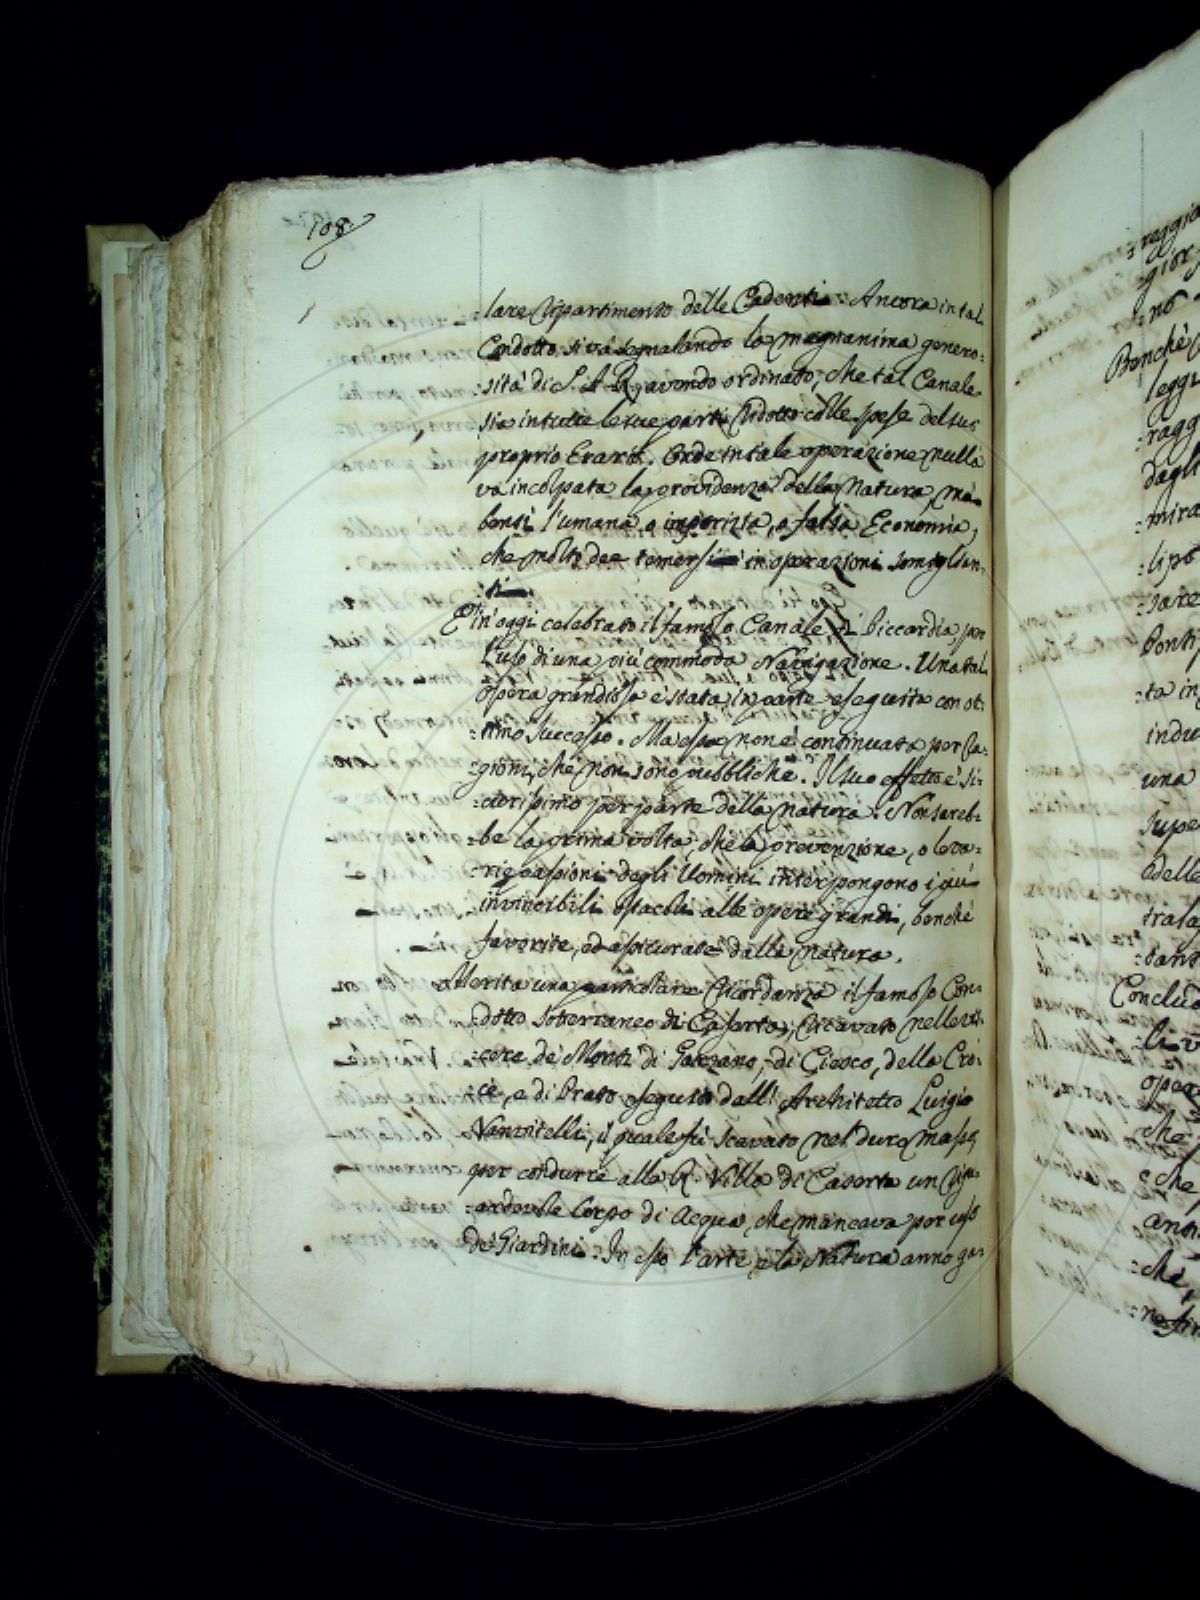 108
lare Ripartimento delle Cadenti. Ancora in tal
Condotto si và segnalando la magnanima genero:
:sità di S. A. R., avendo ordinato, che tal Canale
sia in tutte le sue parti ridotto colle spese del suo
proprio Erario. Onde in tale operazione nulla
và incolpata la providenza della Natura, mà
bensi l'umana o imperizia, o falsa Economia,
che molto dee temersi in operazioni somiglian:
:ti.
E' in oggi celebrato il famoso Canale di Piccardia, per
l'uso di una più commoda Navigazione. Una tal
opera grandiosa è stata in parte eseguita con ot:
:timo successo. Ma essa non è continuata per ra:
:gioni, che non sono pubbliche. Il suo effetto è si:
:curissimo per parte della natura. Non sareb:
:be la prima volta, che la prevenzione, o le va:
:rie passioni degli Uomini interpongono i più
invincibili ostacoli alle opere grandi, benchè
favorite, ed assicurate dalla natura.
Merita una particolare ricordanza il famoso Con:
:dotto soterraneo di Caserta, ricavato nelle vi:
:scere de' Monti di Garzano, di Ciesco, della Cro:
:ce, e di Prato eseguito dall' Architetto Luigio
Vanvitelli, il quale fù scavato nel duro masso,
per condurre alla R. Villa di Caserta un
Corpo di Acqua, che mancava per uso
de' Giardini. In esso l'arte, e la Natura anno ga:
Benchè
leggi
dagli
Ponti
una
Conclu
opera
che